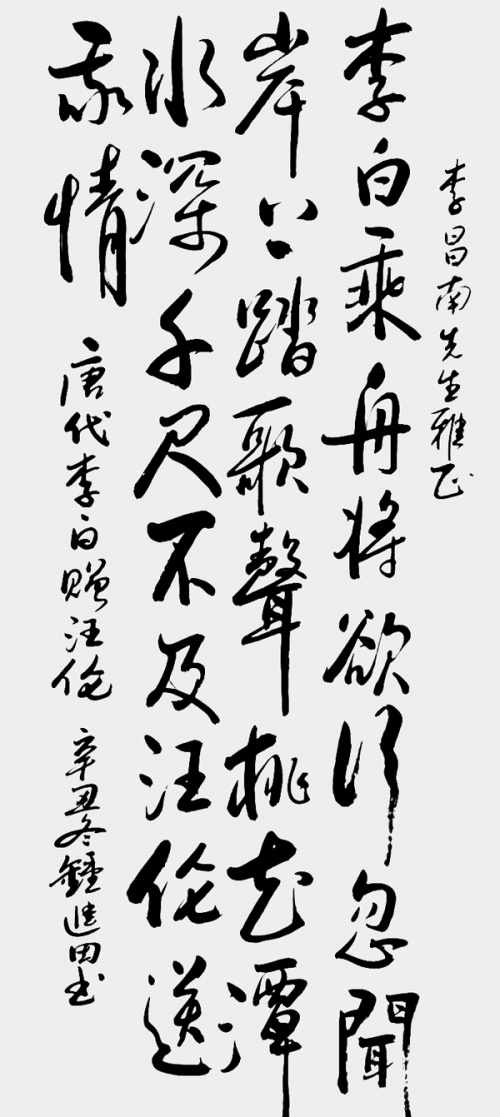 李昌南先生雅正
李白乘舟将欲行忽聞
岸上踏歌聲桃花潭
水深千尺不及汪伦送
我情
唐代李白赠汪伦
辛丑冬鍾進田书